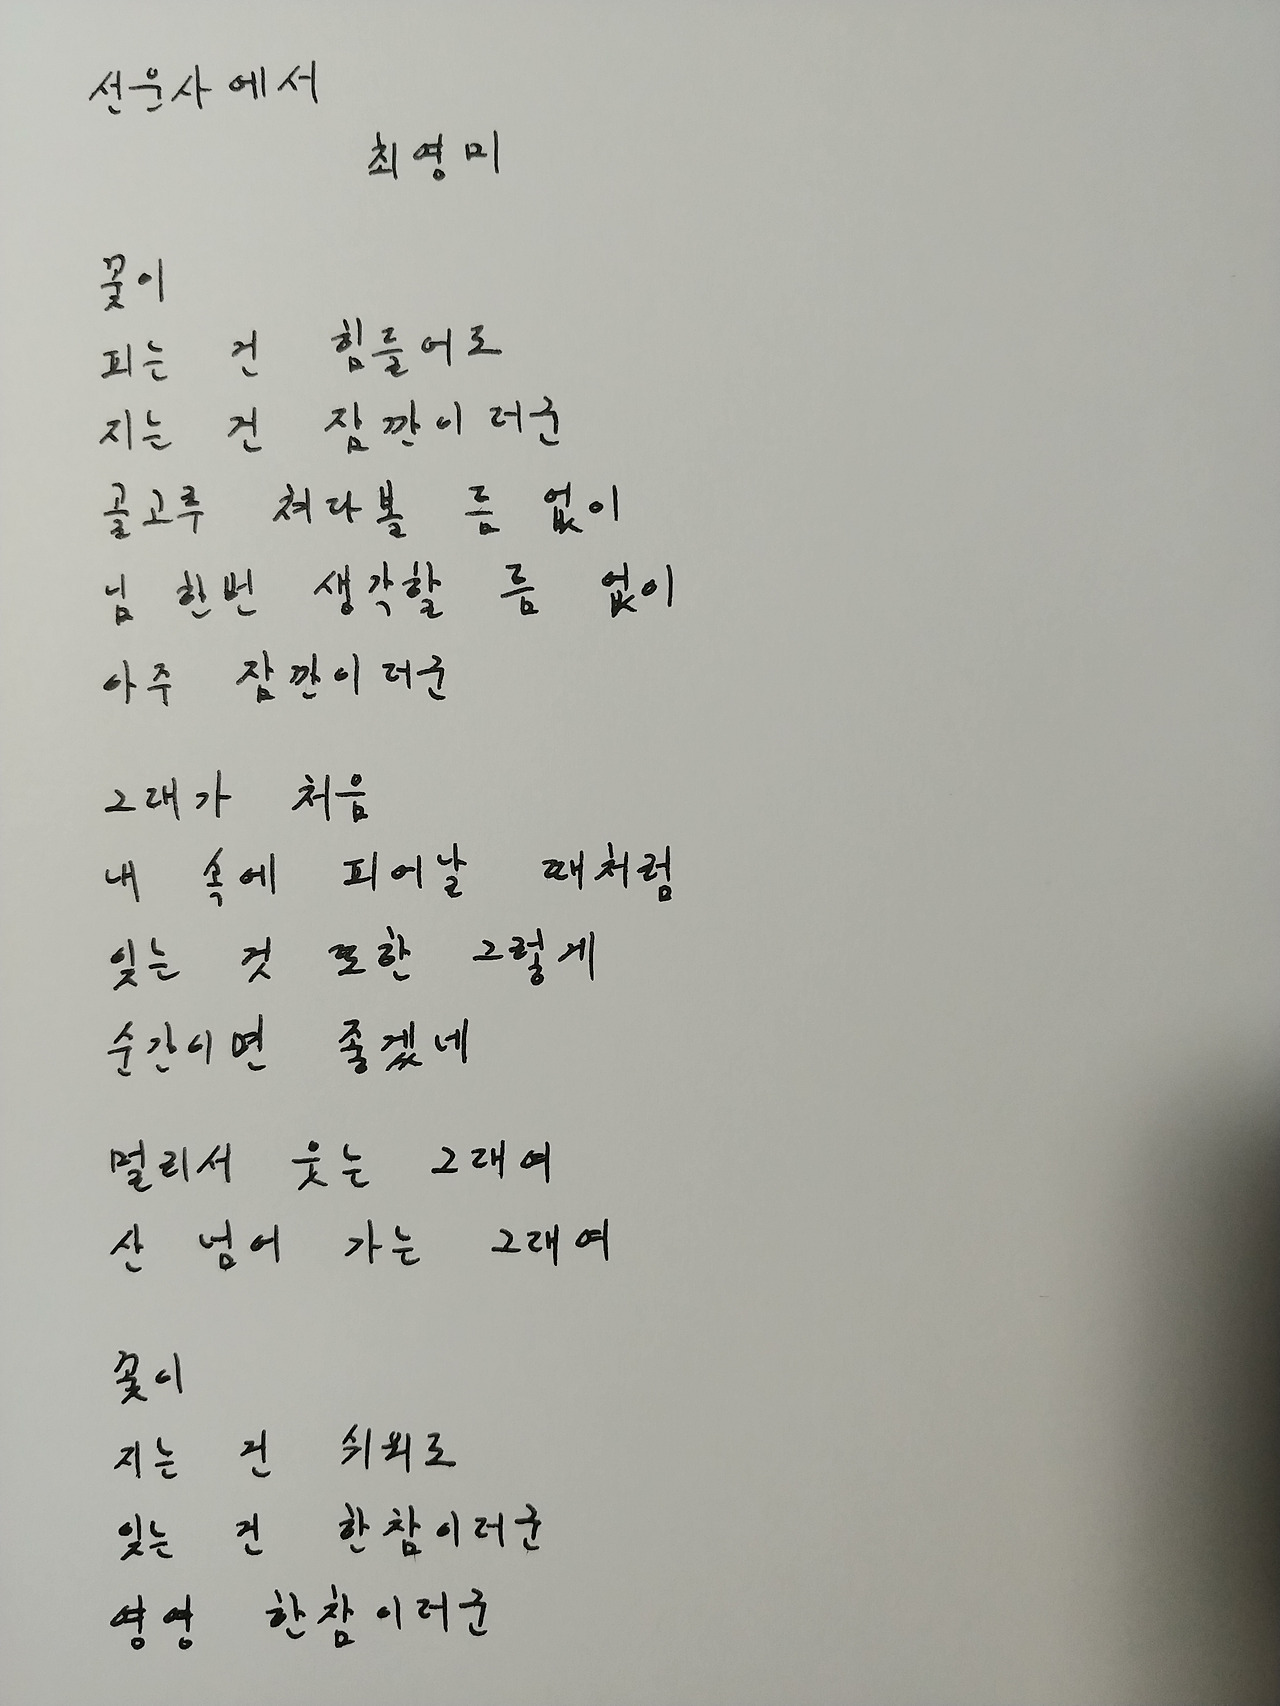 선운사에서
최영미
꽃이
피는 건 힘들어도
지는 건 잠깐이더군
골고루 쳐다볼 틈 없이
님 한번 생각할 틈 없이
아주 잠깐이더군
그대가 처음
내 속에 피어날 때처럼
잊는 것 또한 그렇게
순간이면 좋겠네
멀리서 웃는 그대여
산 넘어 가는 그대여
꽃이
지는 건 쉬워도
잊는 건 한참이더군
영영 한참이더군